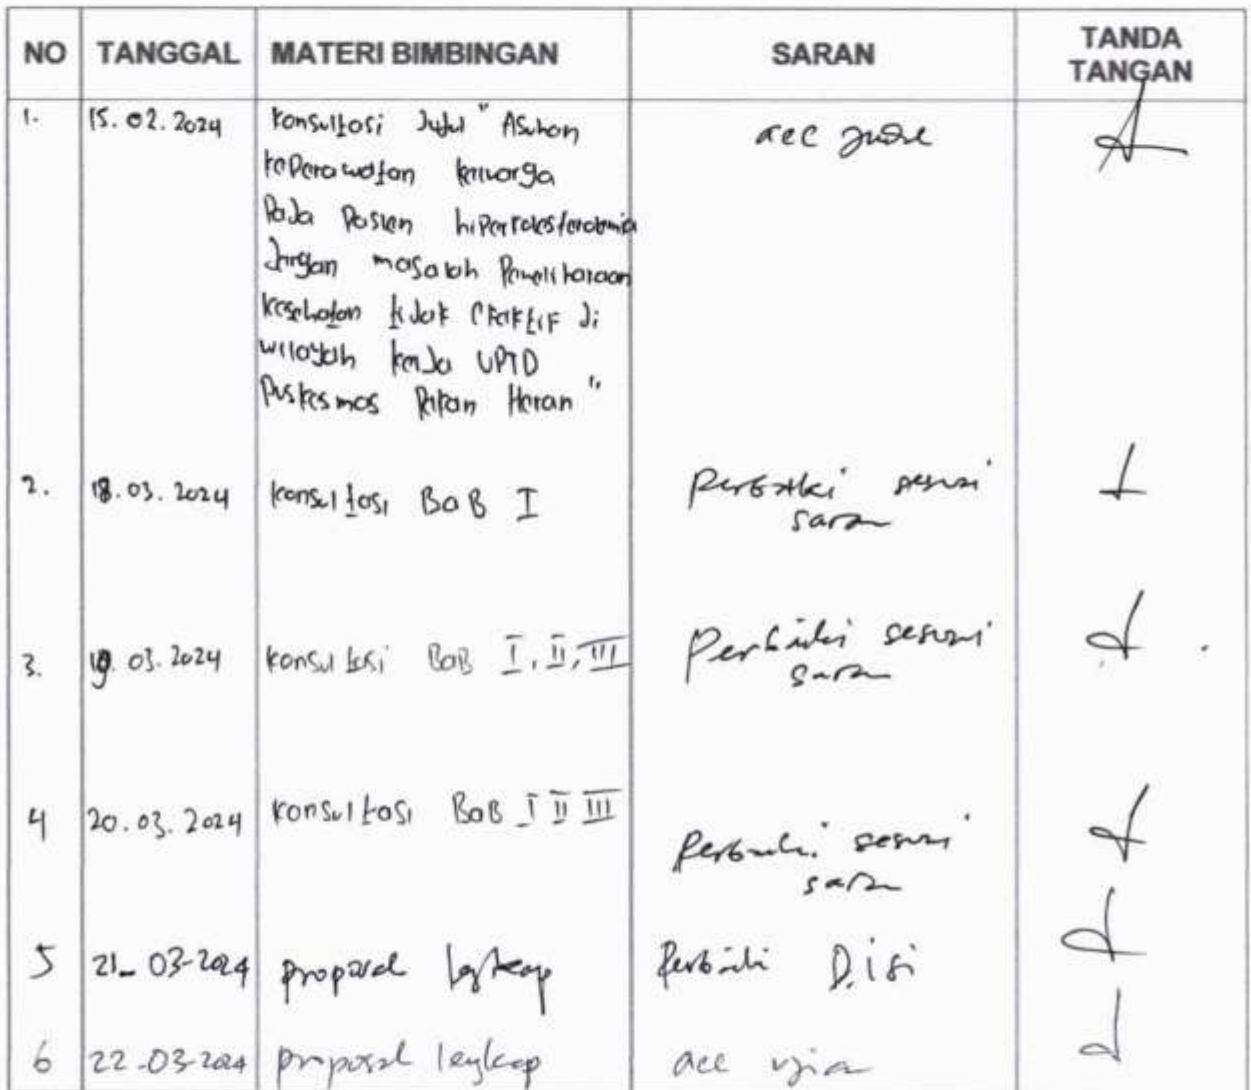 NO TANGGAL MATERI BIMBINGAN SARAN TANDA TANGAN
1. 15.02.2024 Konsultasi Judul " Asuhan acc judul
keperawatan keluarga
Pada Pasien hiperkolesterolemia
dengan masalah Pemeliharaan
kesehatan tidak efektif di
wilayah kerja UPTD
Puskesmas Pakan Heran "
2. 18.03.2024 konsultasi BAB I Perbaiki sesuai
saran
3. 19.03.2024 konsultasi BAB I, II, III Perbaiki sesuai
saran
4 20.03.2024 konsultasi BAB I II III Perbaiki sesuai
saran
5 21-03-2024 proposal lengkap Perbaiki
6 22-03-2024 proposal lengkap acc ujian